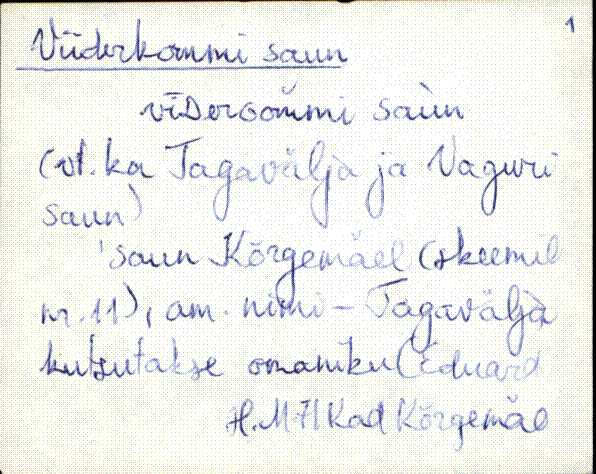 1
Viiderkommi saun
vīDeroommi saùn
(vt. ka Tagavälja ja Vaguri
saun)
'saun Kõrgemäel (skeemil
nr. 11), am. nimi – Tagavälja
kutsutakse omaniku (Eduard
H. Kad Kõrgemäe